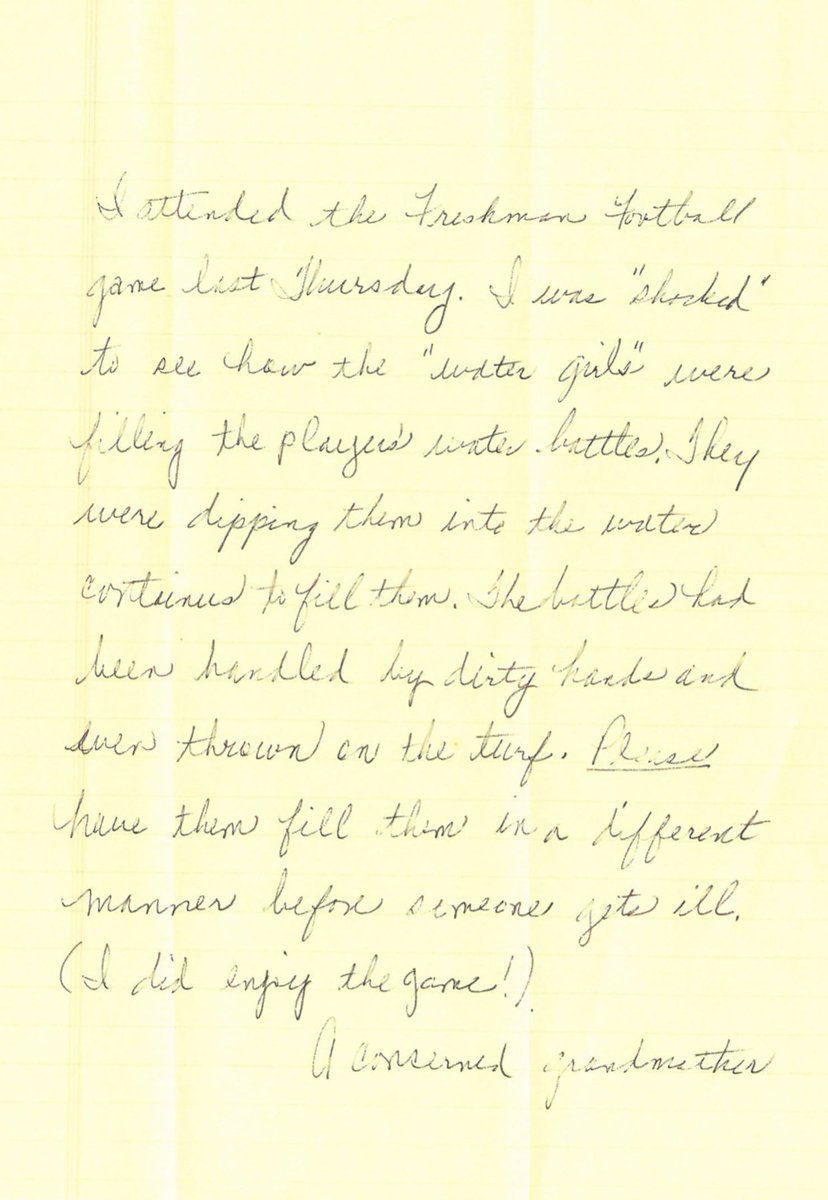 I attended the Freshman Football
game last Thursday. I was "shocked"
to see how the "water girls" were
filling the players' water bottles. They
were dipping them into the water
containers to fill them. The bottles had
been handled by dirty hands and
even thrown on the turf. Please
have them fill them in a different
manner before someone gets ill.
(I did enjoy the game!)
A conserned grandmother